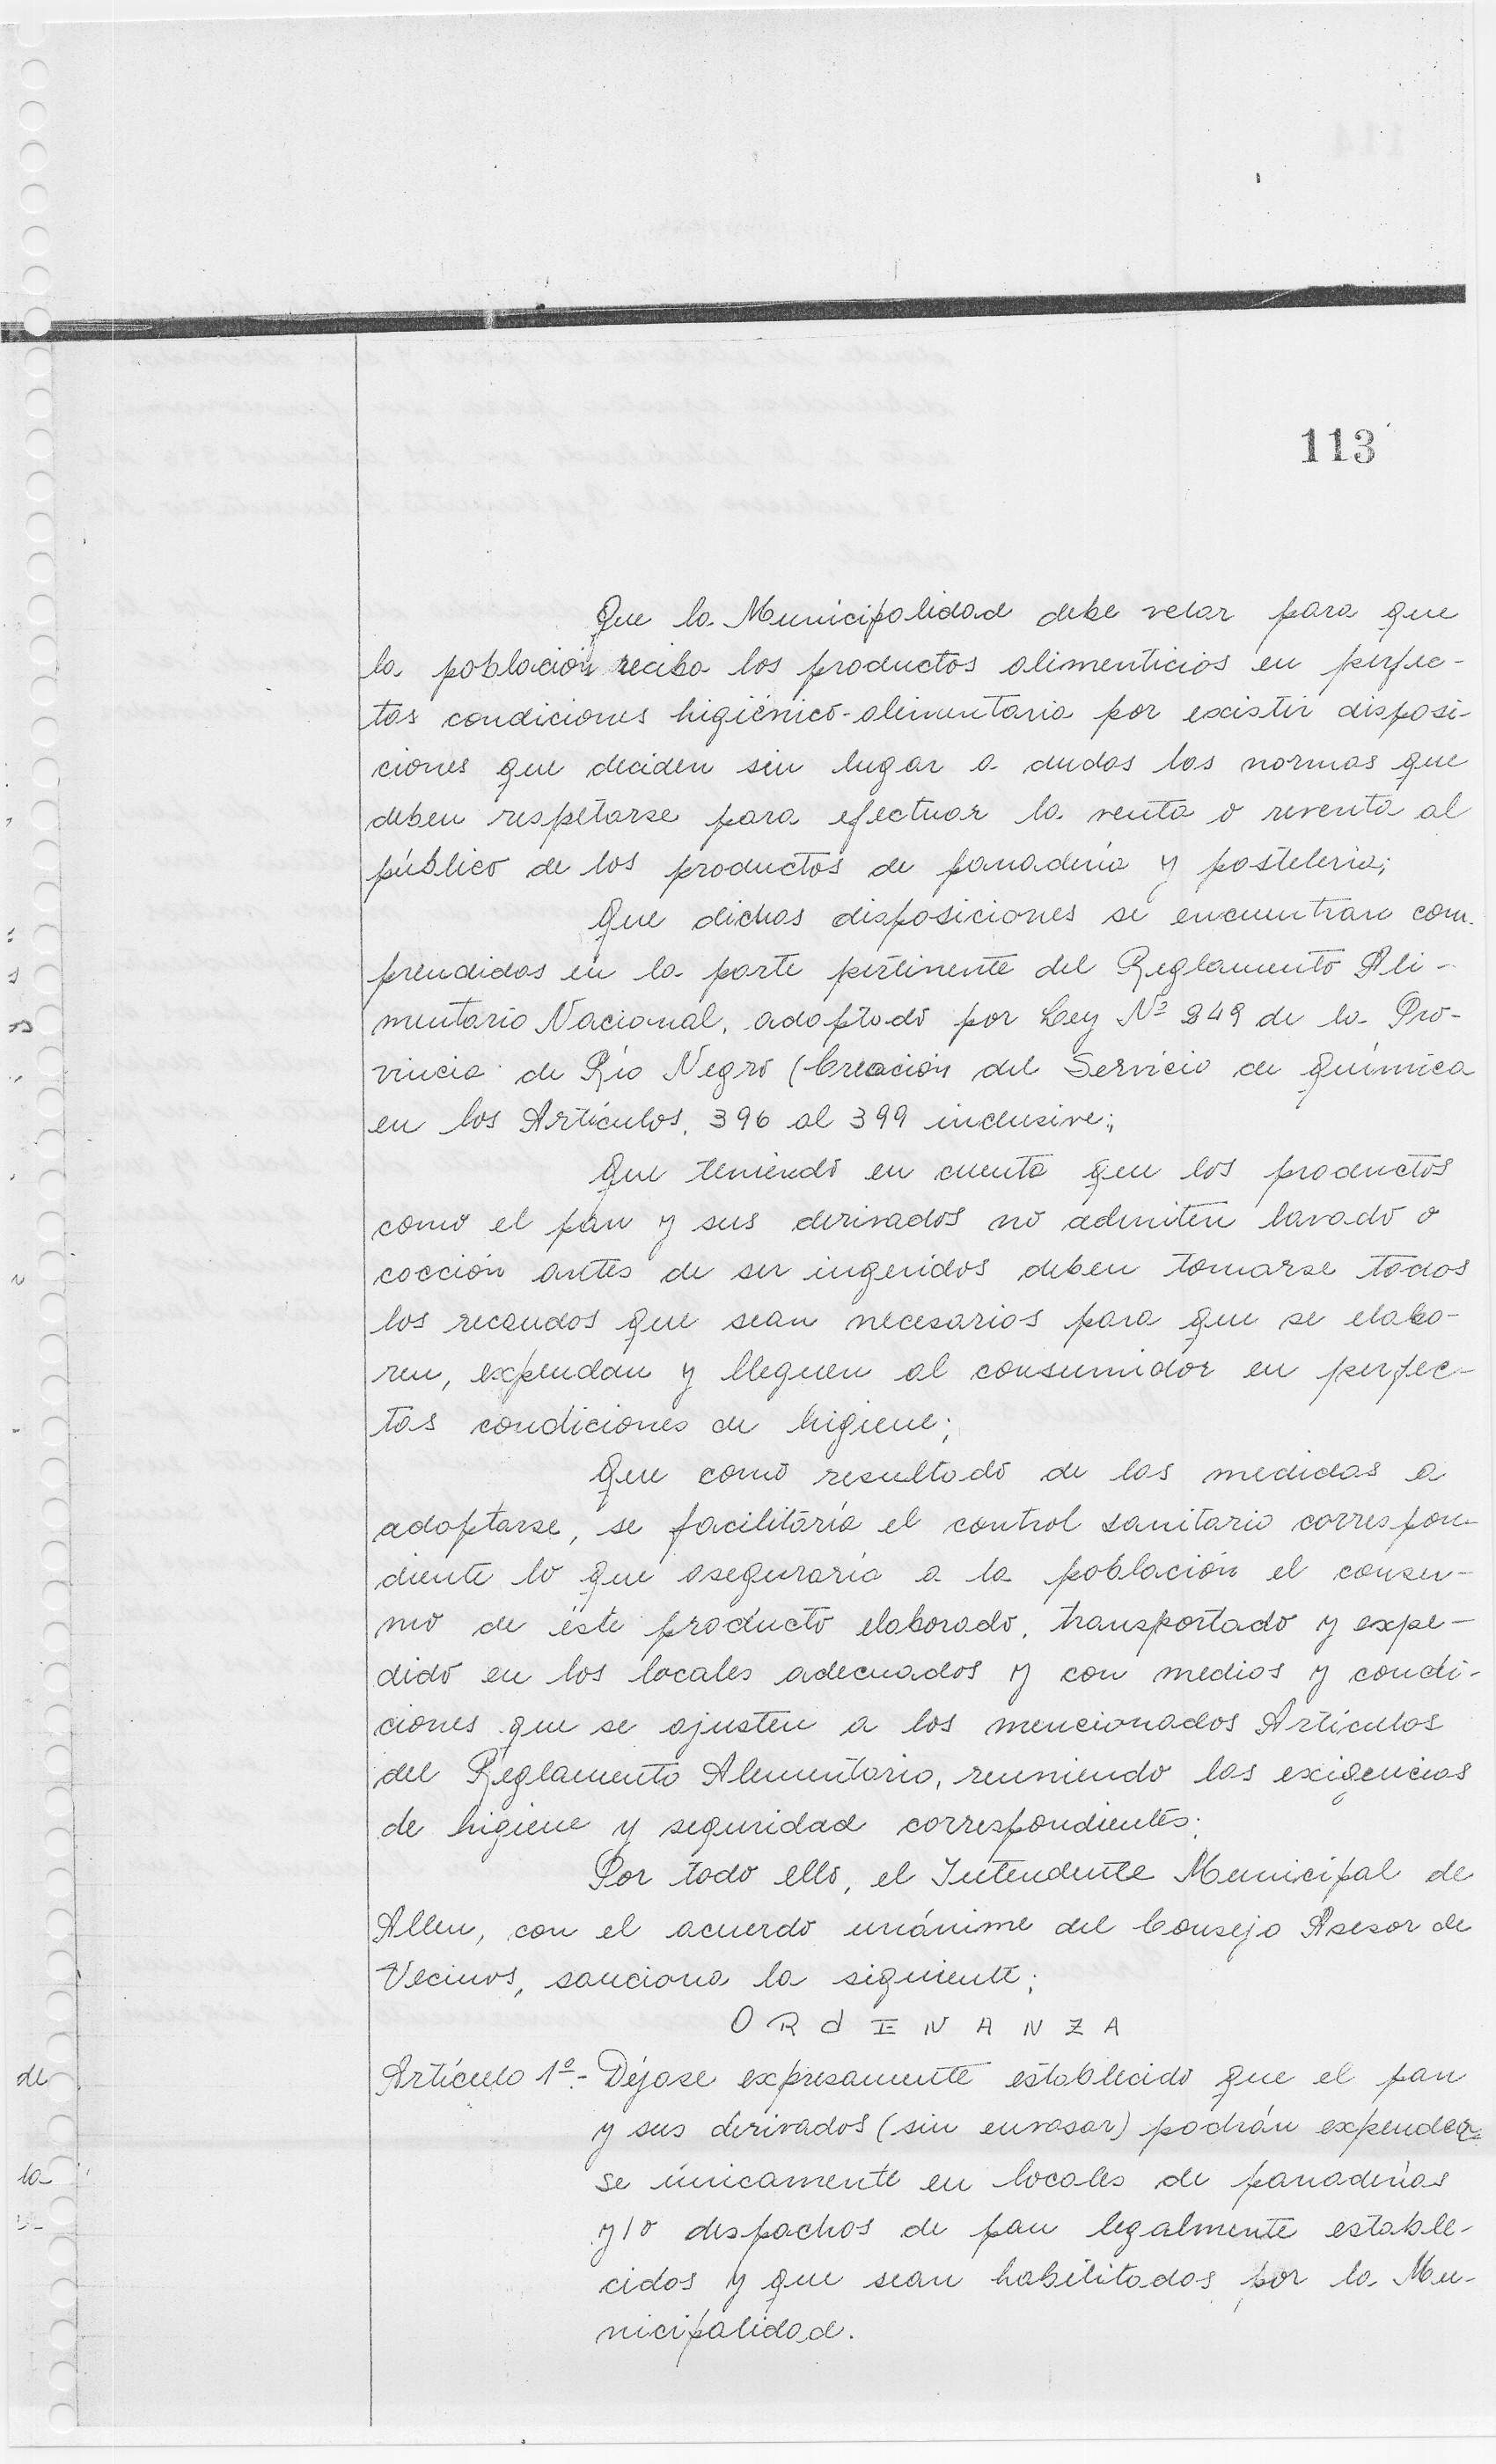 113
Que la Municipalidad debe velar para que
la población reciba los productos alimenticios en perfec-
tas condiciones higiénico-alimentaria por existir disposi-
ciones que deciden sin lugar a dudas las normas que
deben respetarse para efectuar la venta o reventa al
público de los productos de panadería y pastelería;
Que dichas disposiciones se encuentran com-
prendidas en la parte pertinente del Reglamento Ali-
mentario Nacional, adoptado por Ley Nº 849 de la Pro-
vincia de Río Negro (Creación del Servicio de Química
en los Artículos, 396 al 399 inclusive;
Que teniendo en cuenta que los productos
como el pan y sus derivados no admiten lavado o
cocción antes de ser ingeridos deben tomarse todos
los recaudos que sean necesarios para que se elabo-
ren, expendan y lleguen al consumidor en perfec-
tas condiciones de higiene;
Que como resultado de las medidas a
adoptarse, se facilitaría el control sanitario correspon-
diente lo que aseguraría a la población el consu-
mo de éste producto elaborado, transportado y expe-
dido en los locales adecuados y con medios y condi-
ciones que se ajusten a los mencionados Artículos
del Reglamento Alementario, reuniendo las exigencias
de higiene y seguridad correspondientes;
Por todo ello, el Intendente Municipal de
Allen, con el acuerdo unánime del Consejo Asesor de
Vecinos, sanciona la siguiente;
ORdENANZA
Artículo 1º.- Déjase expresamente establecido que el pan
y sus derivados (sin envasar) podrán expender-
se únicamente en locales de panaderías
y/o despachos de pan legalmente estable-
cidos y que sean habilitados por la Mu-
nicipalidad.
de
la